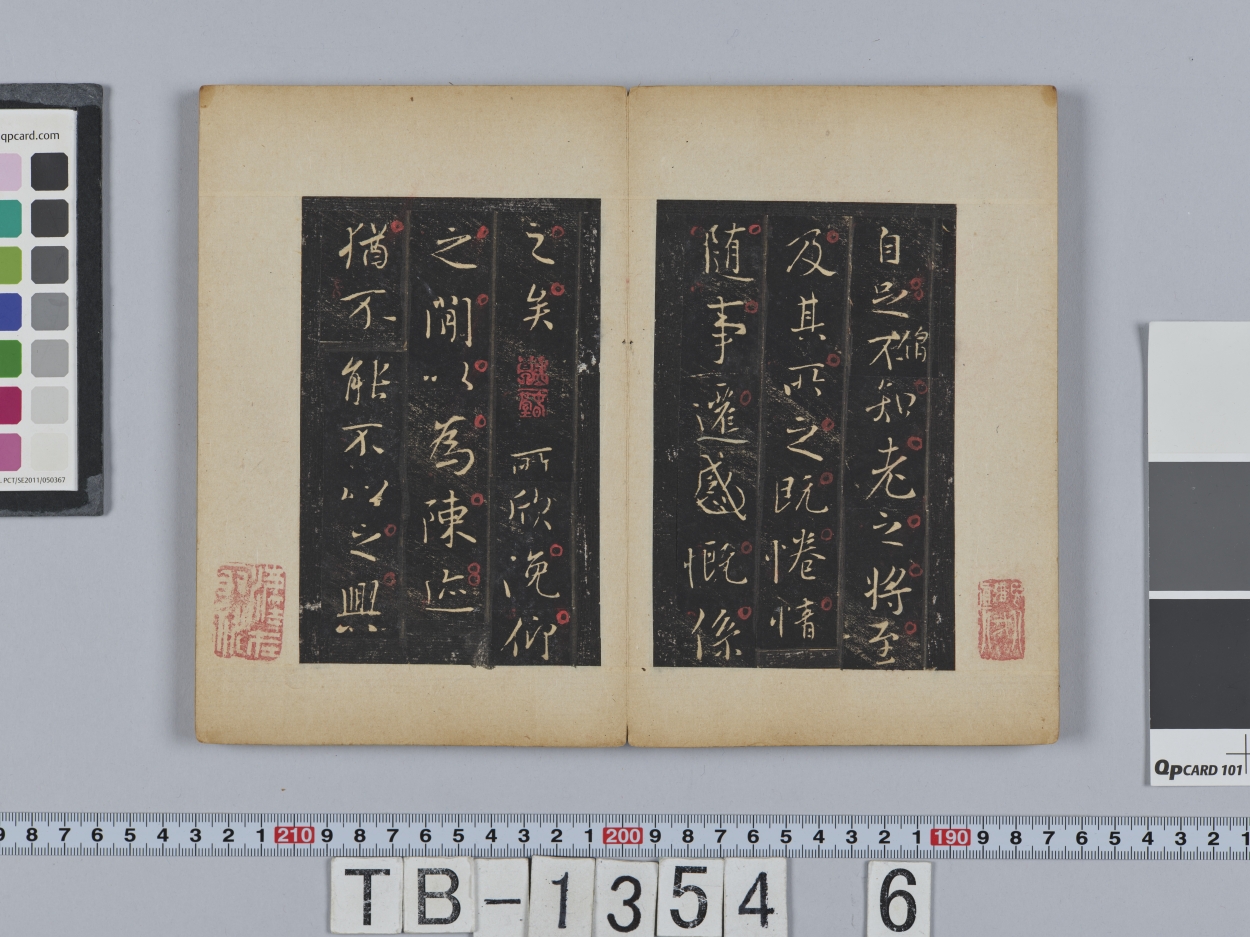 自足不知老之将至
僧
及其所之既惓情
随事遷感慨係
之矣
所欣俛仰
之閒以為陳迹
猶不能不以之興
qpcard.com
PCT/SE2011/050367
QPCARD 101
9 8 7 6 5 4 3 2 1 210 9 8 7 6 5 4 3 2 1 200 9 8 7 6 5 4 3 2 1 190 9 8 7 6 5 4 3 2 1
TB-1354 6